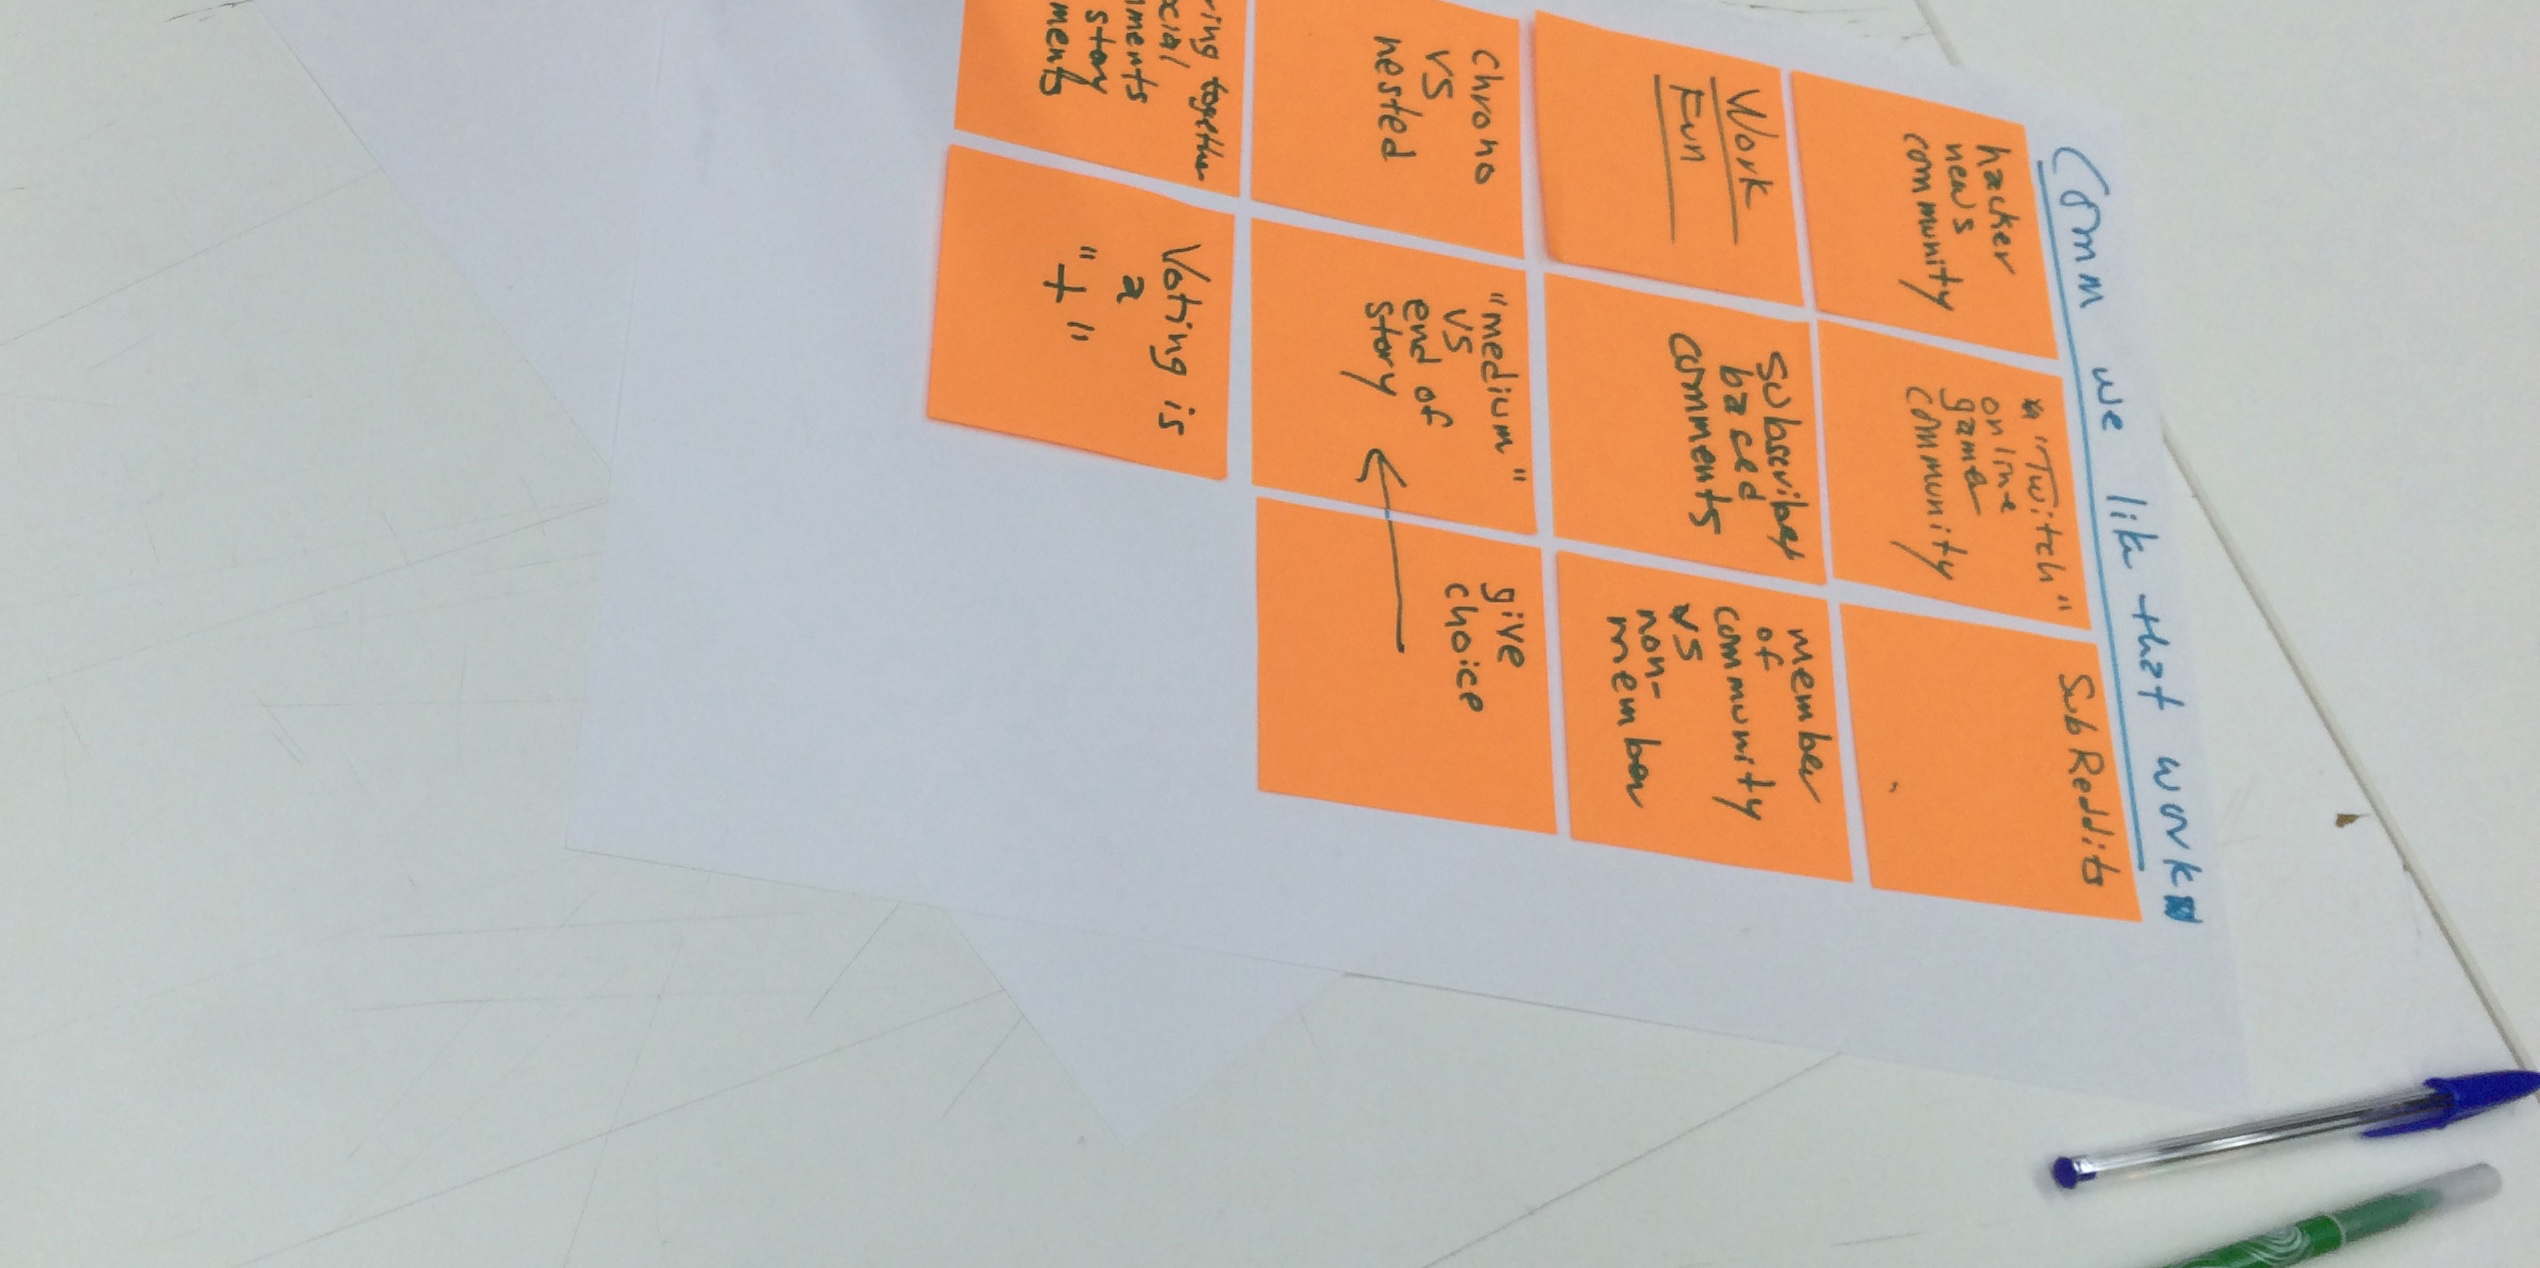 Comm we like that work
hacker
news
community
"Twitch"
online
game
community
SubReddits
Work
Fun
Subscriber
based
comments
member
of
community
vs
non-
member
Chrono
vs
nested
"medium"
vs
end of
story
give
choice
together
story
Voting is
a
"+"